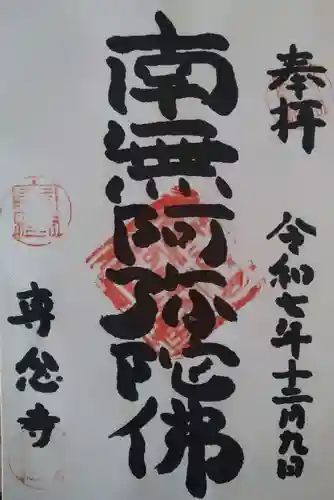 奉拝
令和七年十二月九日
南無阿弥陀佛
専念寺